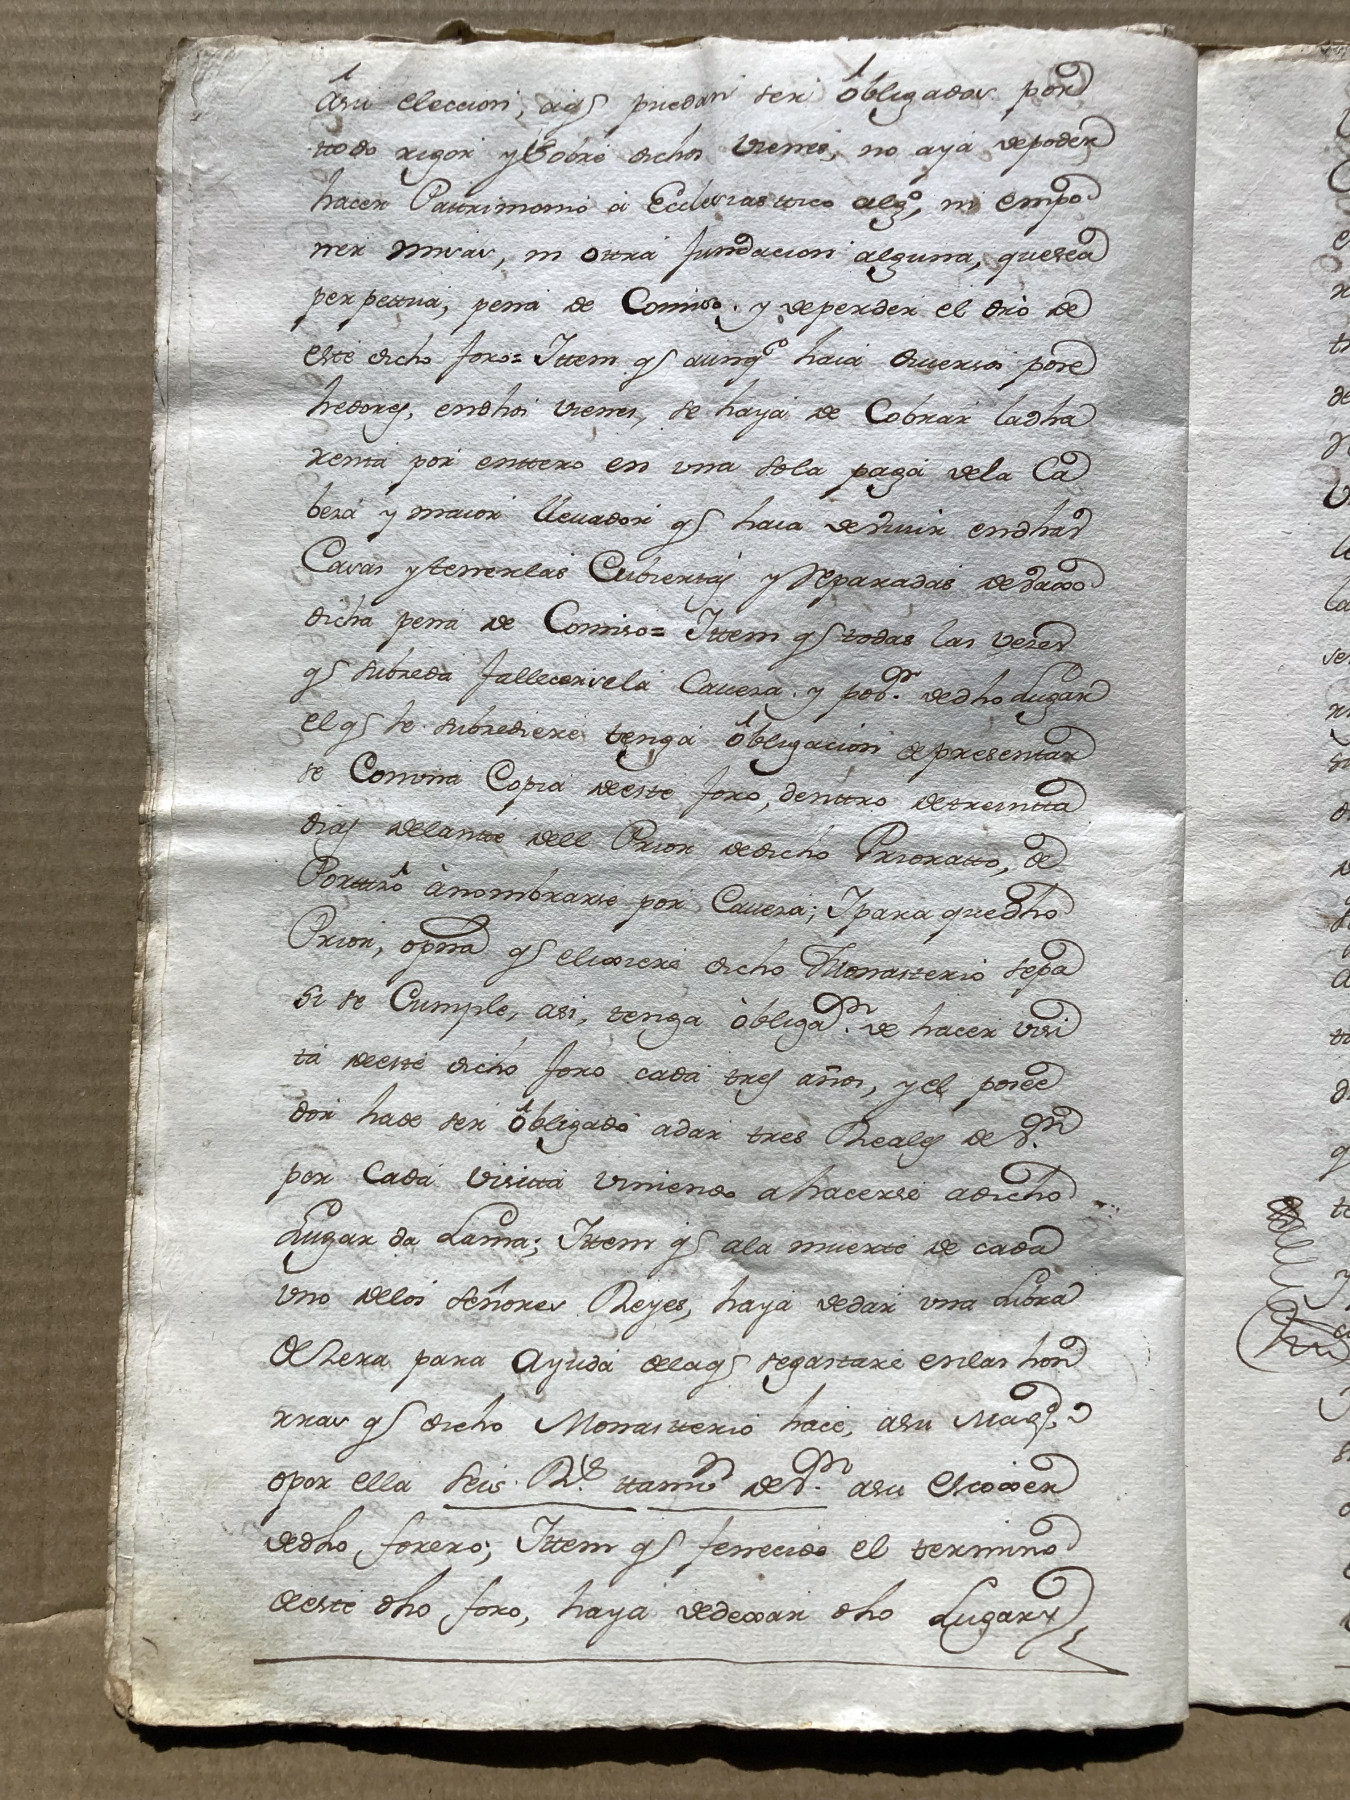 âsu eleccion, aqᵉ puedan ser ôbligados por
ttodo rigor y Sobre dichos vienes, no aya depoder
hacer Pattrimonio â Ecclesiasttico algº, ni empo
ner misas, ni ottra fundacion alguna, quesea
perpettua, pena de Comiso. y deperder el dro de
este dicho foro= Ittem qᵉ aunqᵉ haia diuersos pose
hedores, endhos vienes, se haya de Cobrar ladha
renta por enttero en vna sola paga dela Ca
beza y maior lleuador qᵉ haia deviuir endhas
Casas y tenerlas Cubiertas y Reparadas de
dicha pena de Comiso= Ittem qᵉ todas las vezes
qᵉ subzeda fallecerse la Caueza. y posᵒʳ. dedho Lugar
el qᵉ le subzediere tenga ôbligacion depresentar
se Conuna Copia deeste foro, denttro detreintta
dias delantte dell Prior dedicho Prioratto, de
Portturô ànombrarse por Caueza; Ipara quedho
Prior, opnᵃ qᵉ elixiere dicho Monasterio sepa
si se Cumple, asi, tenga òbligaᵒⁿ. de hacer visi
ta deeste dicho foro cada tres años, y el posee
dor hade ser ôbligado adar tres Reales de vᵒⁿ
por cada visitta viniendo a hacerse adicho
Lugar da Lama; Ittem qᵉ ala muerte de cada
vno delos señores Reyes, haya dedar vna Libra
de Zera para Ayuda delaqᵉ segastare enlas hon
rras qᵉ dicho Monastterio hace, asu Magᵈ.
opor ella seis Rˢ. ttamⁿ devᵒⁿ. asu escoxer
dedho forero; Ittem qᵉ fenecido el termino
deeste dho foro, haya dedexar dho Lugar y